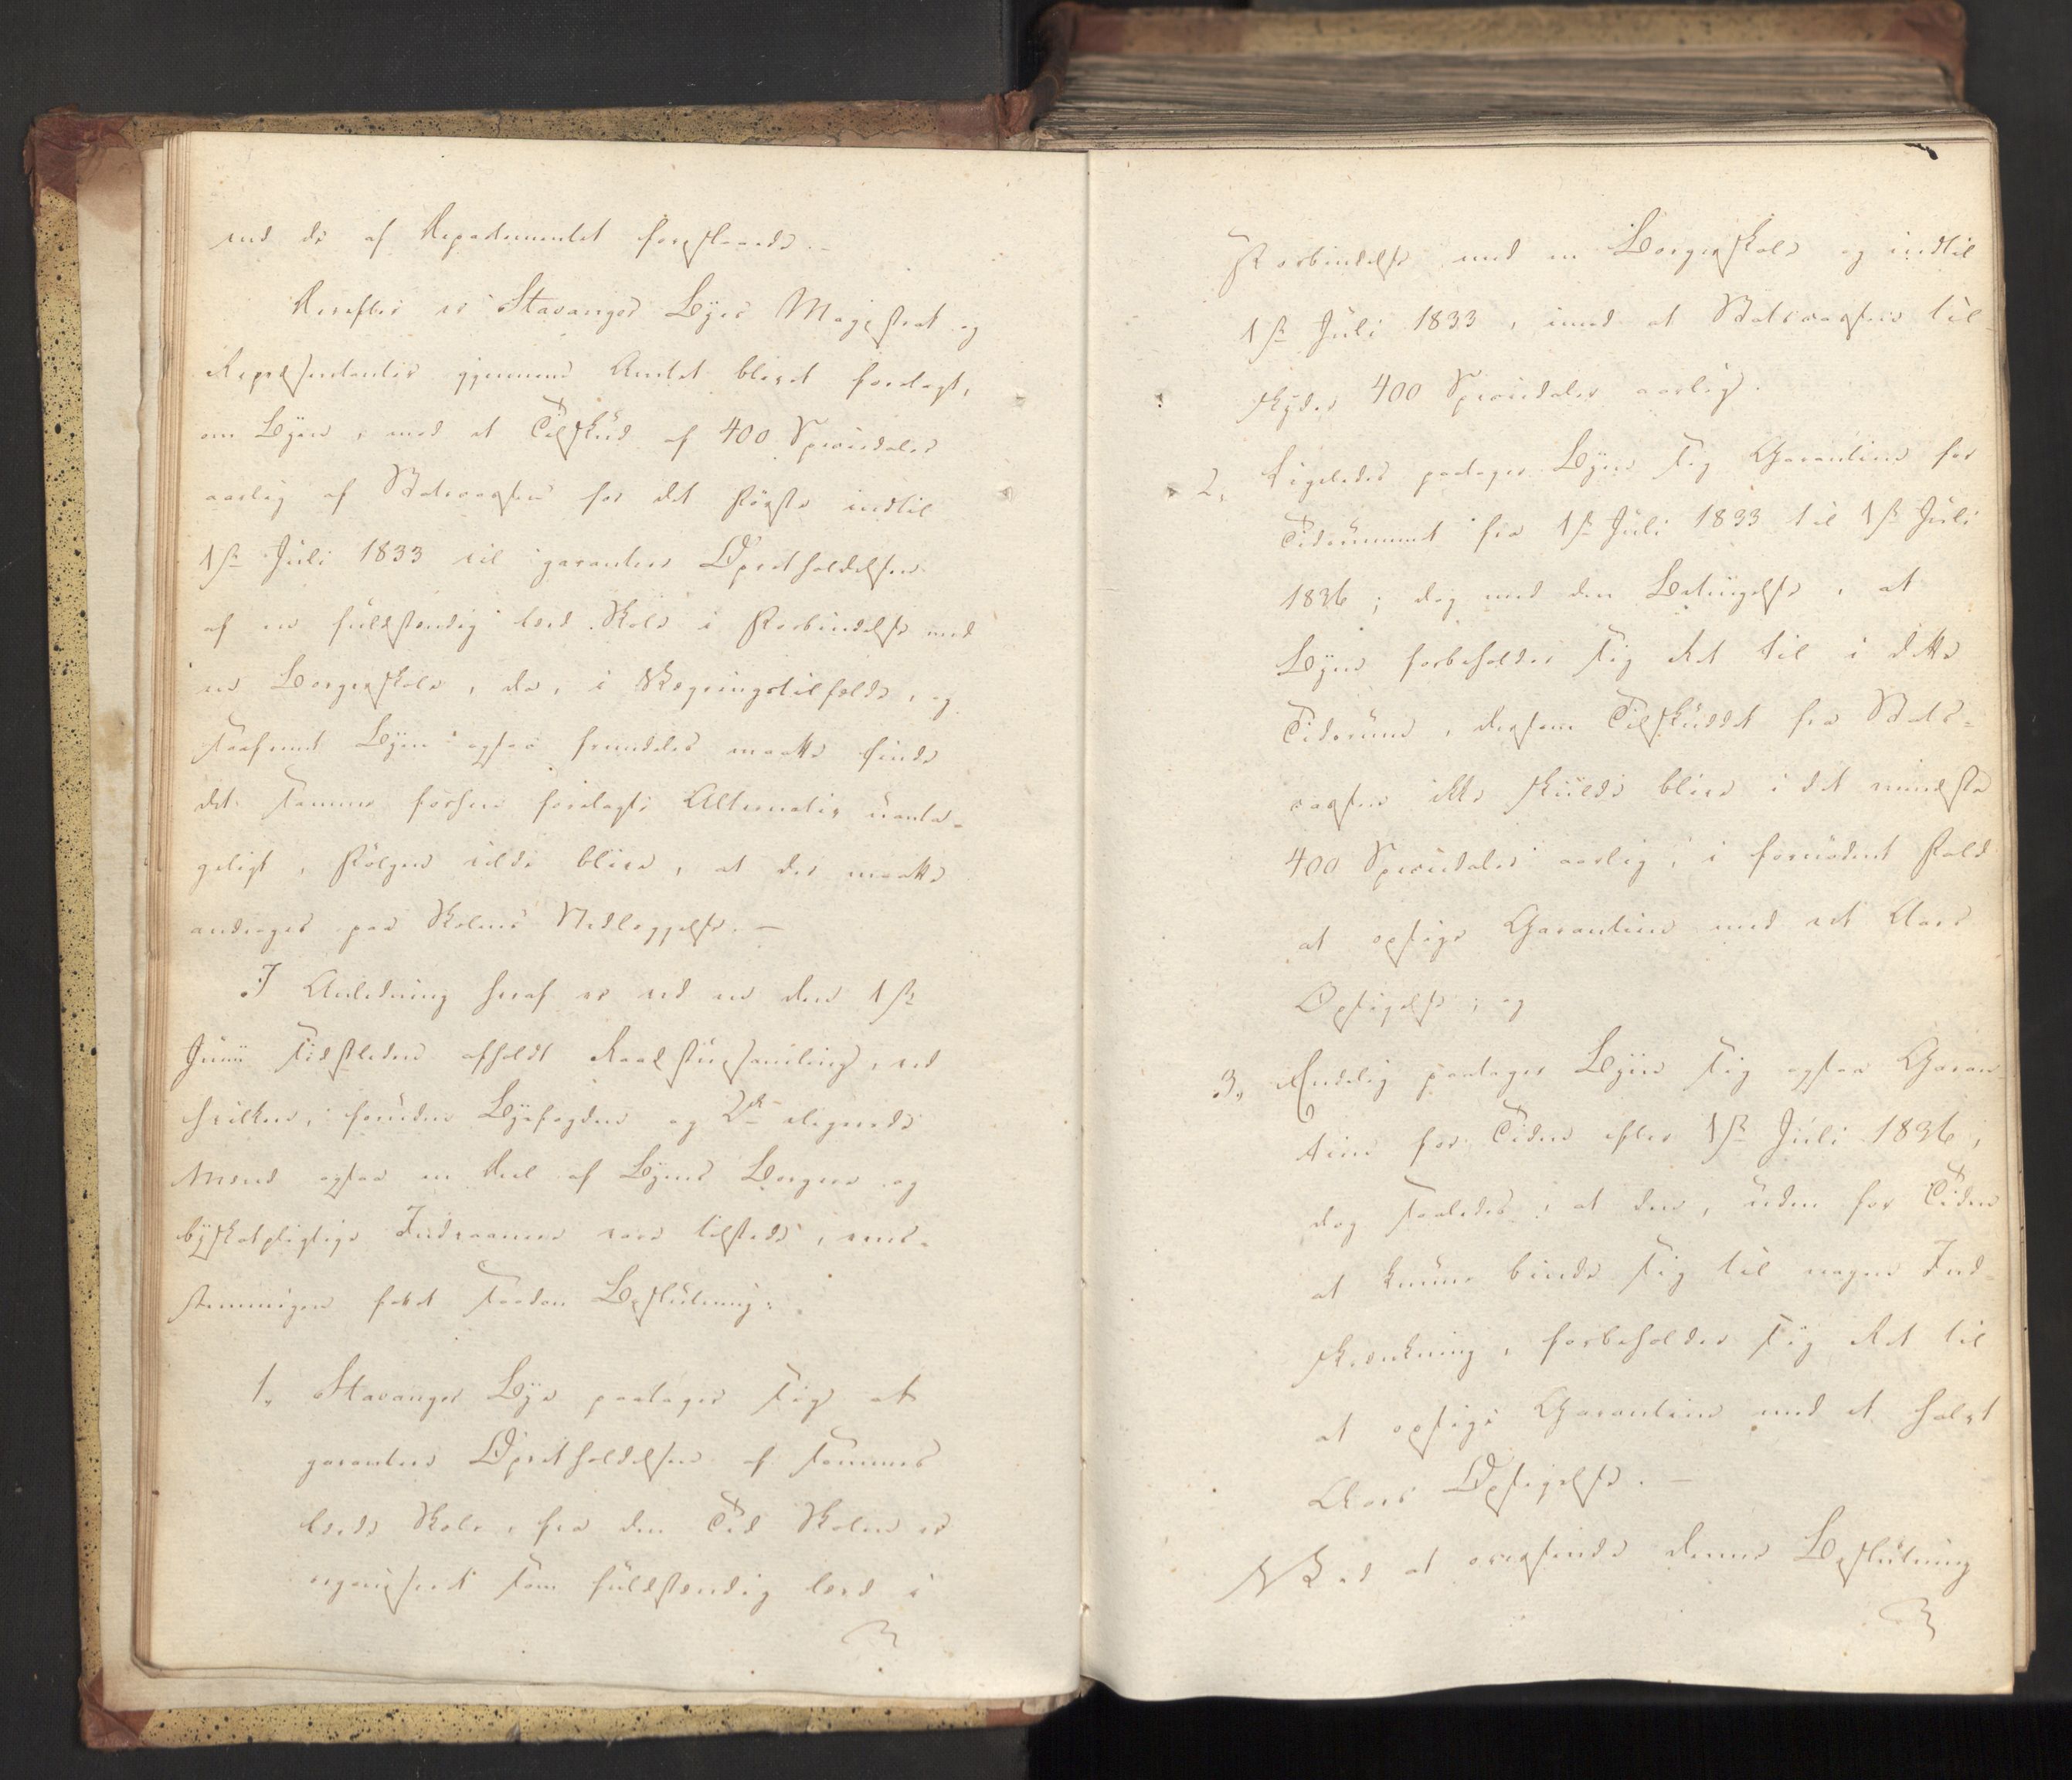 end de af Departementet foreslaaede. –
Derefter er Stavanger Byes Magistrat og
Repræsentanter gjennem Amtet blevet forelagt,
om Byen, med et Tilskud af 400 Speciedaler
aarlig af Statscassen for det første indtil
1ste Juli 1833 vil garantere Opretholdelsen
af en fuldstændig lærd Skole i Forbindelse med
en Borgerskole, da, i Vægringstilfælde, og
saafremt Byen ogsaa fremdeles maatte finde
det samme forhen forelagte Alternativ uanta-
geligt, Følgen vilde blive, at der maatte
andrages paa Skolens Nedlæggelse. –
I Anledning heraf er ved en den 1ste
Junii sidstleden afholdt Raadstuesamling, ved
hvilken, foruden Byefogden og 2de eligerede
Mænd ogsaa en Deel af Byens Borgere og
byskatpligtige Indvaanere vare tilstede, eens-
stemmigen fattet saadan Beslutning:
1, Stavanger Bye paatager sig at
garantere Opretholdelsen af sammes
lærde Skole, fra den Tid Skolen er
organiseret som fuldstændig lærd i
Forbindelse med en Borgerskole og indtil
1ste Juli 1833, imod at Statscassen til-
skyder 400 Speciedaler aarlig.
2, Ligeledes paatager Byen sig Garantien for
Tidsrummet fra 1ste Juli 1833 til 1ste Juli
1836; dog med den Betingelse, at
Byen forbeholder sig Ret til i dette
Tidsrum, dersom Tilskuddet fra Stats-
cassen ikke skulde blive i det mindste
400 Speciedaler aarlig, i fornødent Fald
at opsige Garantien med eet Aars
Opsigelse; og
3, Endelig paatager Byen sig ogsaa Garan-
tien for Tiden efter 1ste Juli 1836,
dog saaledes, at den, uden for Tiden
at kunne binde sig til nogen Ind-
skrænkning, forbeholder sig Ret til
at opsige Garantien med et halvt
Aars Opsigelse. –
Ved at oversende denne Beslutning